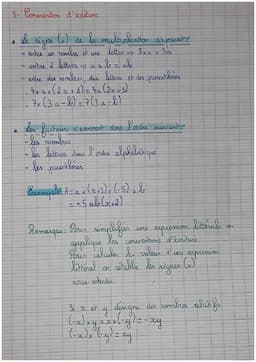 3- Convention d'écriture
• Le signe (x) de la multiplication disparaît
- entre un nombre et une lettre → 3xa = 3a
- entre 2 lettres → a x b = ab
- entre des nombres, des lettres et des parenthèses
. 4 x a x (2x + 1) = 4a (2x + 1)
. 7 x (3a - b) = 7 (3a - b)
• Les facteurs s'écrivent dans l'ordre suivant
- Les nombres
- les lettres dans l'ordre alphabétique
- les parenthèses
Exemple A = a x (x+2) x (-5) x b
= -5 ab (x+2)
Remarque : Pour simplifier une expression littérale on
applique les conventions d'écriture
Pour calculer la valeur d'une expression
littéral on rétablie les signes (x)
sous-entendu.
Si x et y désigne des nombres relatifs.
(-x) x y = x x (-y) = -xy
(-x) x (-y) = xy